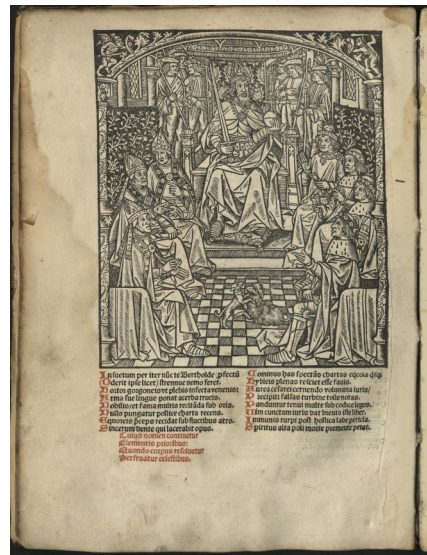 Insuetum per iter nūc te Bertholde ,pfectū
Oderit ipse licet/ strenne nemo feret.
plebis infecta veneno:
Arma sue lingue ponat acerba trucis.
Nobilis/et fama multis recitāda sub oris.
Nullo pungatur pollice charta recens.
Equoreis p̄ceps recidat sub fluctibus atro.
Sincerum dente qui lacerabit opus.
Cuius nomen continetur
Elementis prioribus:
Quando corpus resoluetur
Perfruatur celestibus.
Cominus has spectās chartas
Hybleis plenas resciet esse fauis.
Aurea cesarei cernendo volumina iuris/
Precipiti falsas turbine tolle notas.
Panduntur tenui multe sub codice leges.
Vim cunctam iuris dat breuis iste liber.
Inmunis turpi post hostica labe pericla.
Spiritus alta poli morte premente petat.